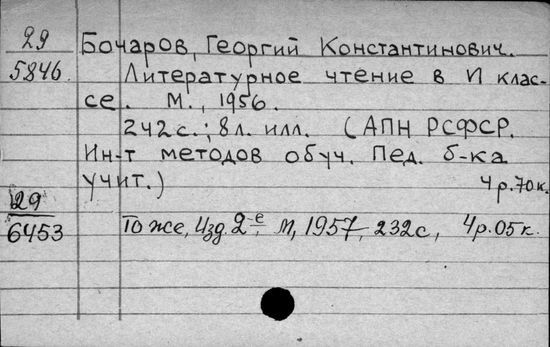 29 Бочаров, Георгий Константинович.
5846. Литературное чтение в VI клас-
се. М., 1956.
242 с.; 8 л. илл. (АПН РСФСР.
Ин-т методов обуч. Пед. б-ка
учит.) 4 р. 70 к.
29
6453 То же, Изд. 2-е, М, 1957, 232 с, 4 р. 05 к.